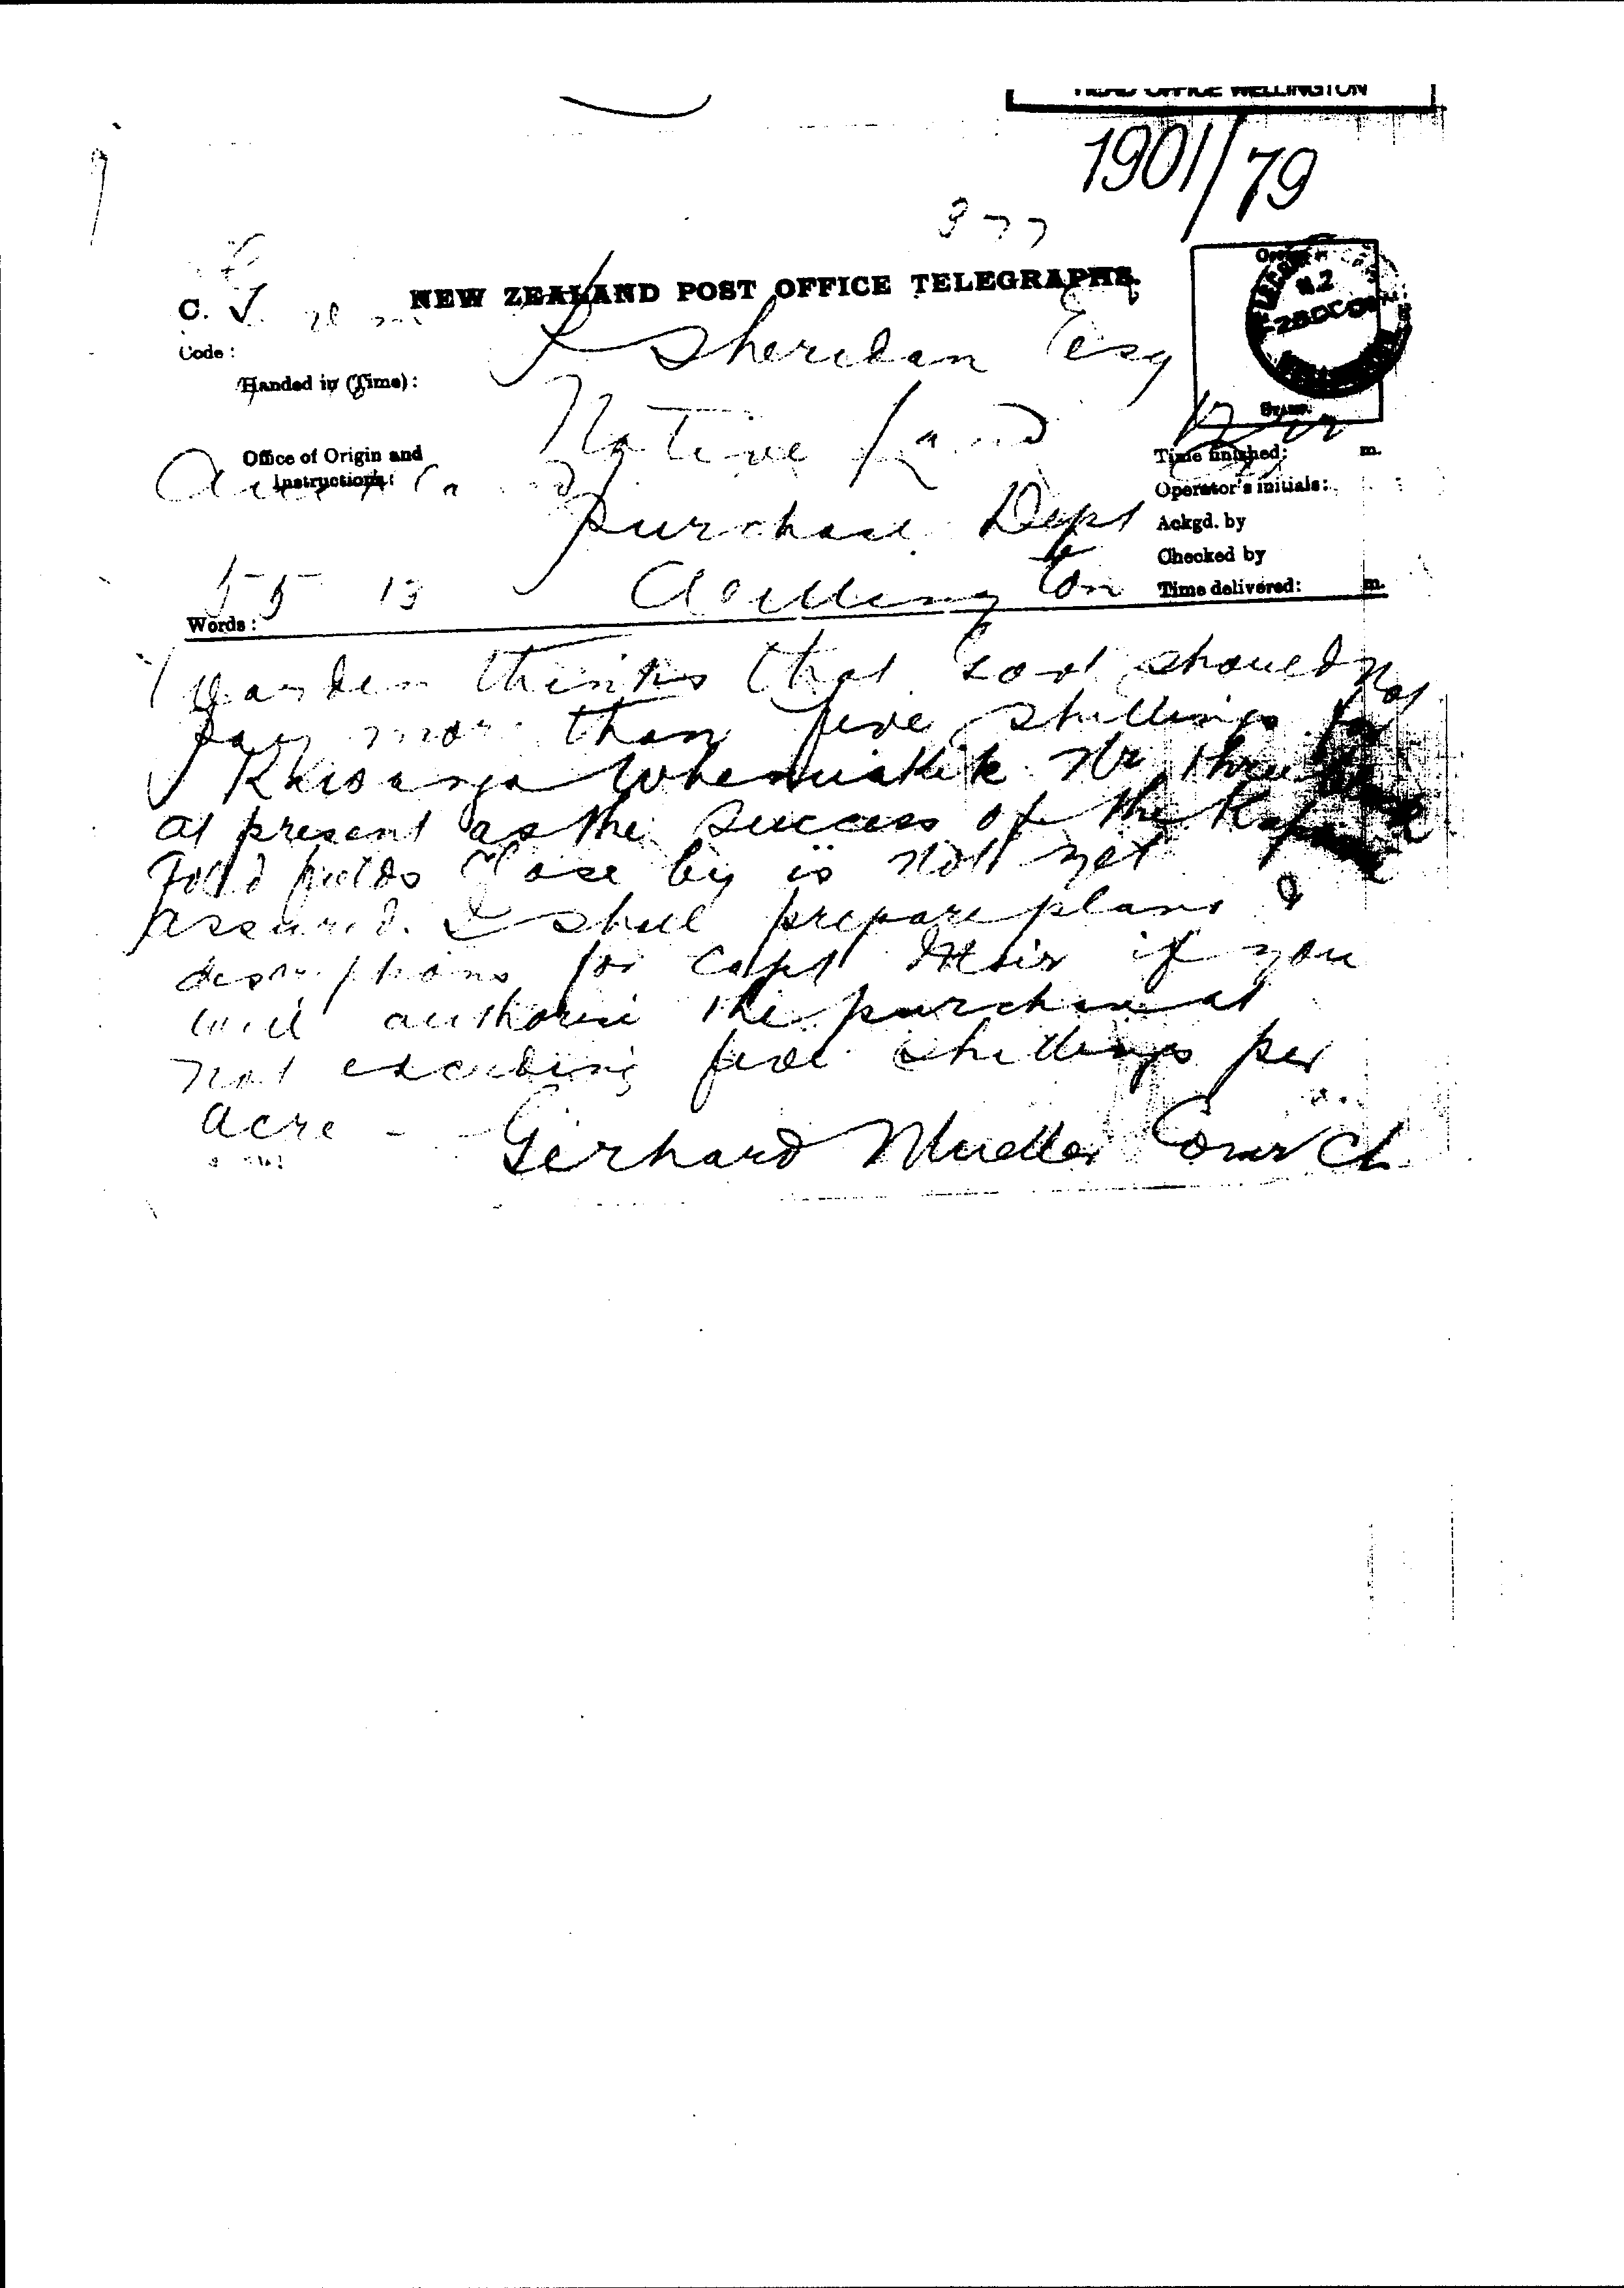 HEAD OFFICE WELLINGTON
1901/79
377
NEW ZEALAND POST OFFICE TELEGRAPHS.
C.
Code:
Handed in (Time):
Sheridan Esq
Native Land
Office of Origin and
Instructions:
Purchase Dept
Wellington
Stamp.
Time finished: m.
Operator's initials:
Ackgd. by
Checked by
Time delivered: m.
55 13
Words:
Warden thinks that Govt should not
pay more than five shillings for
Whenuakite Nr three
at present as the success of the
Gold fields close by is not yet
assured. I shall prepare plans &
descriptions for Capt Mair if you
will authorise the purchase at
not exceeding five shillings per
acre -
Gerhard Mueller Comr CL